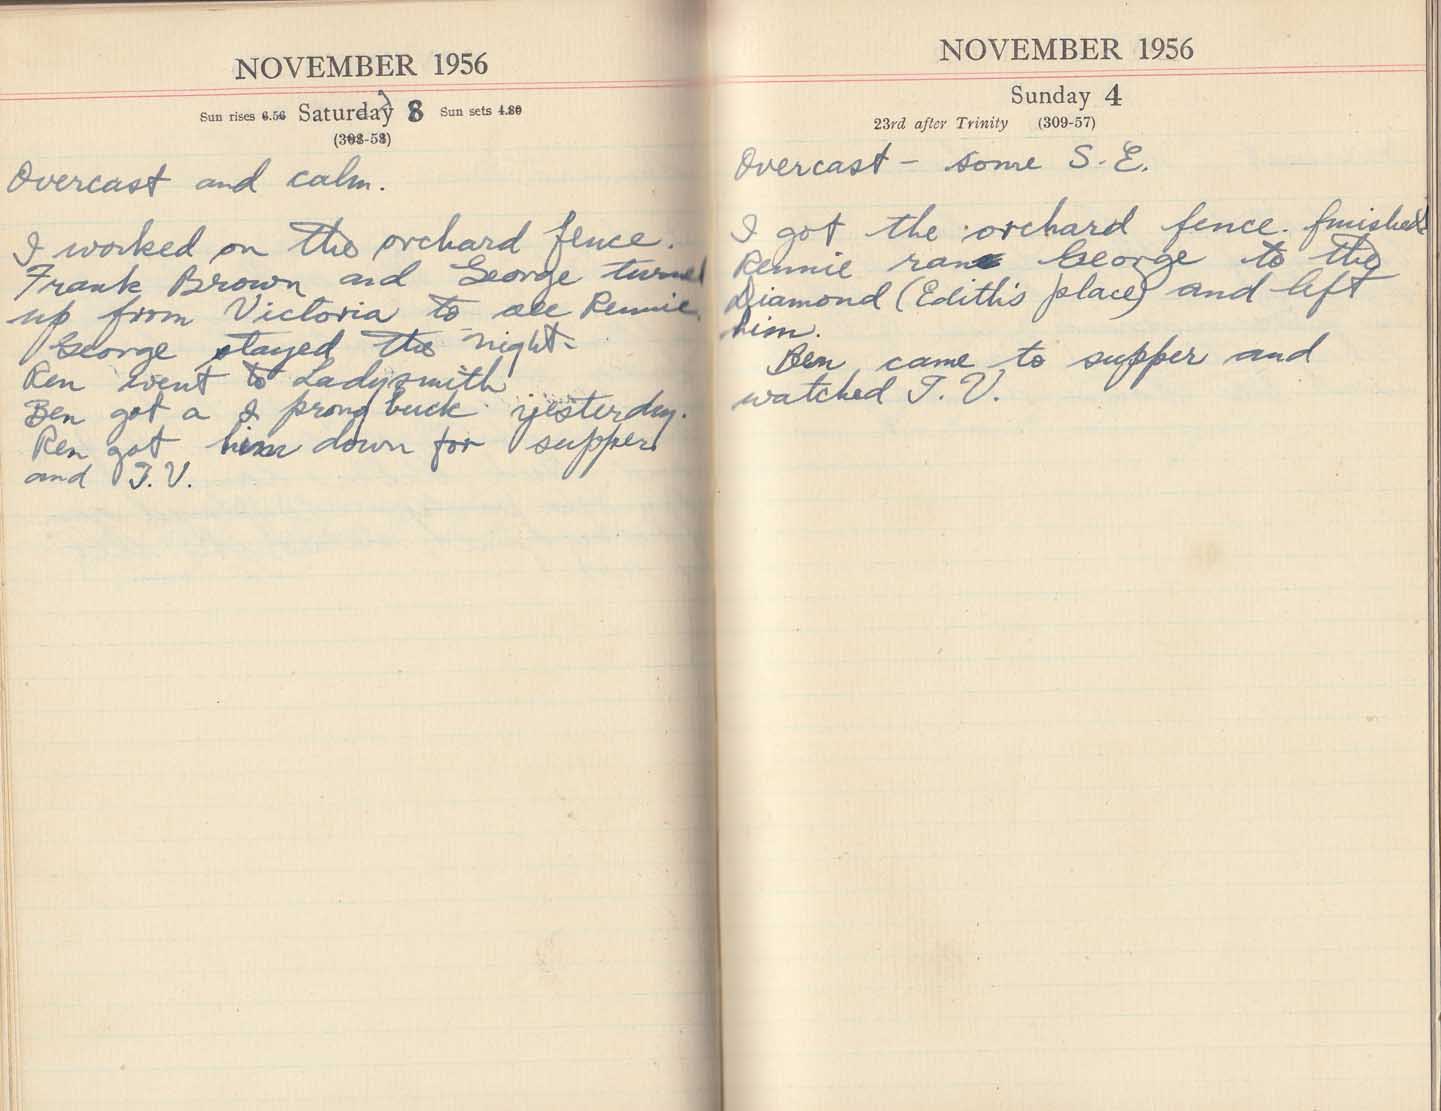 NOVEMBER 1956
Sun rises 6.56 Saturday 3 Sun sets 4.30
(308-58)
Overcast and calm.
I worked on the orchard fence.
Frank Brown and George turned
up from Victoria to see Rennie.
George stayed the night.
Ren went to Ladysmith
Ben got a 2 prong buck yesterday.
Ren got him down for supper
and T.V.
NOVEMBER 1956
Sunday 4
23rd after Trinity (309-57)
Overcast - some S.E.
I got the orchard fence finished
Rennie ran George to the
Diamond (Edith's place) and left
him.
Ben came to supper and
watched T.V.